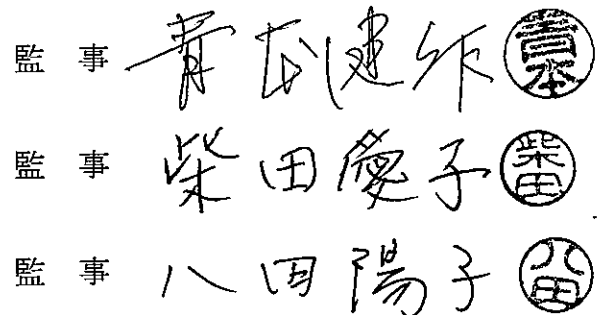 監事 青木健作 青木
監事 柴田愛子 柴田
監事 八田陽子 八田